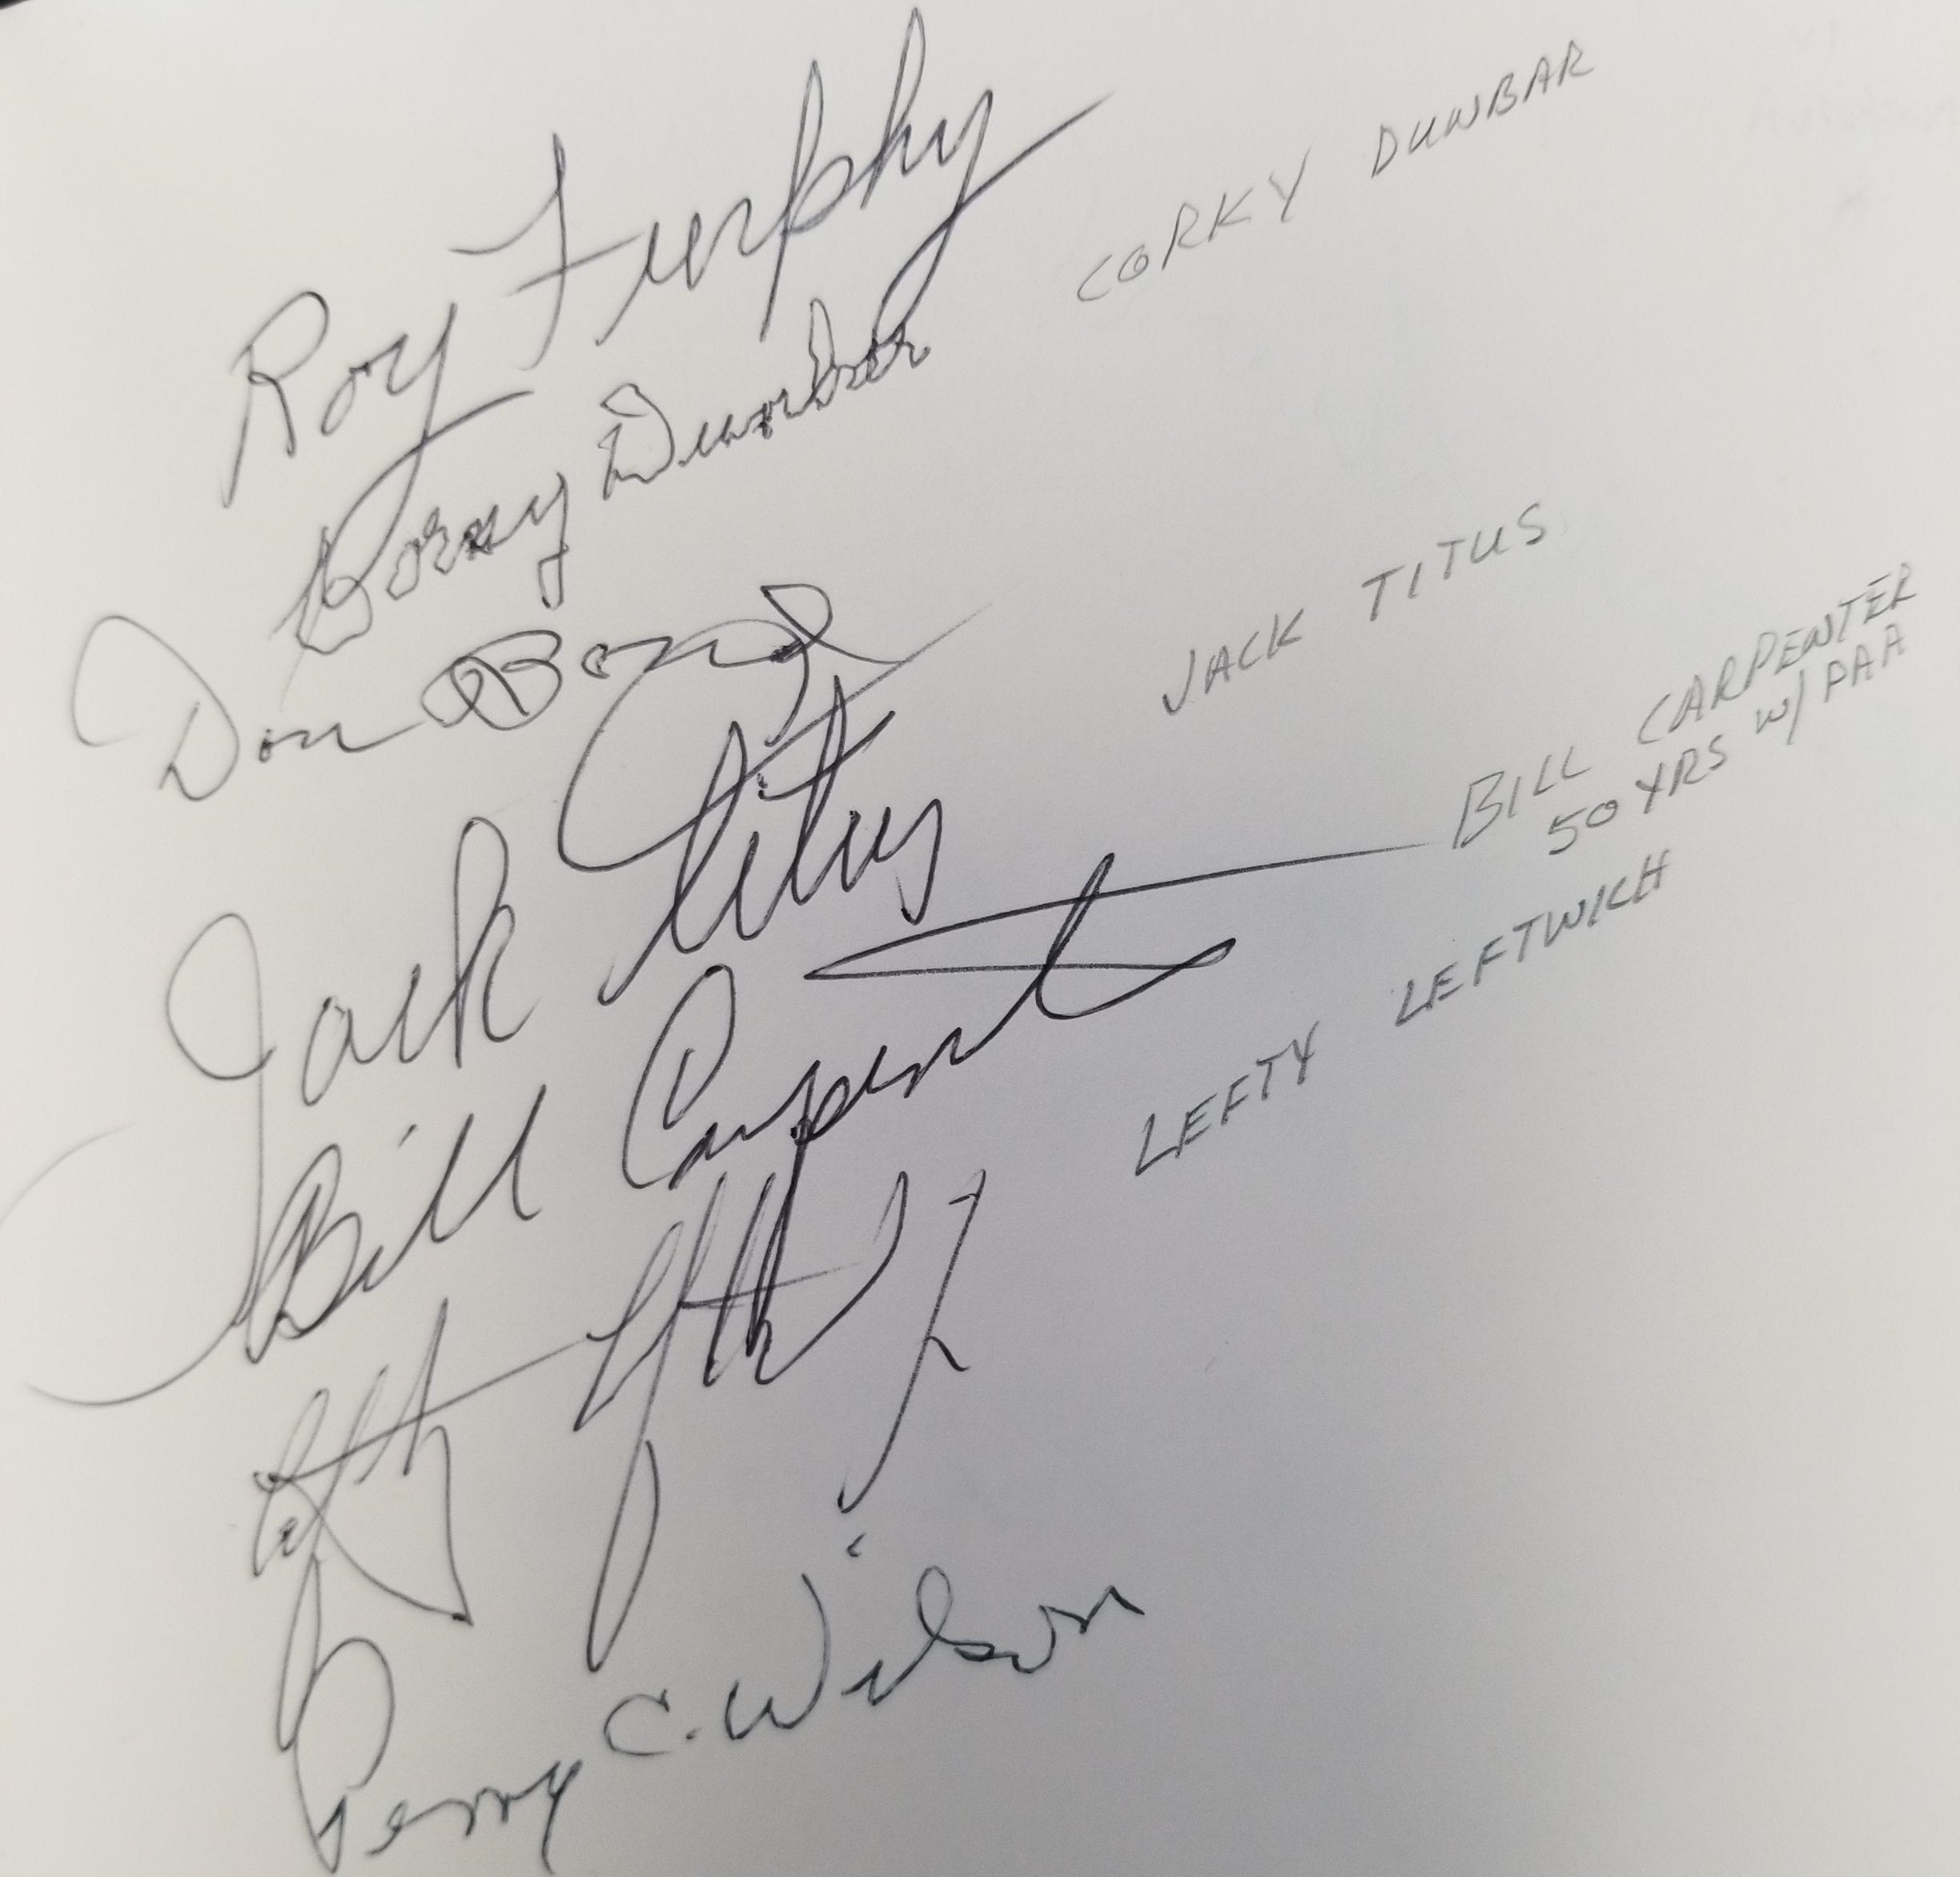 Roy Furphy
Corky Dunbar CORKY DUNBAR
Don Bond
Jack Titus JACK TITUS
Bill Carpenter BILL CARPENTER
50 YRS W/ PAA
Lefty Leftwich LEFTY LEFTWICH
Perry C. Wilson